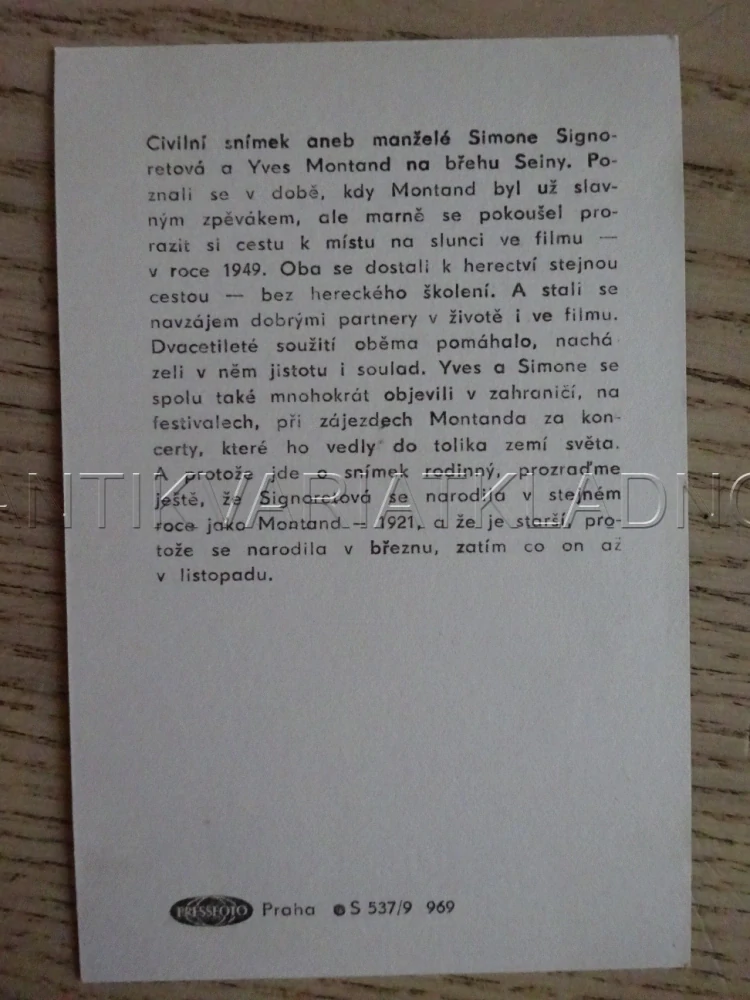 Civilní snímek aneb manželé Simone Signo-
retová a Yves Montand na břehu Seiny. Po-
znali se v době, kdy Montand byl už slav-
ným zpěvákem, ale marně se pokoušel pro-
razit si cestu k místu na slunci ve filmu —
v roce 1949. Oba se dostali k herectví stejnou
cestou — bez hereckého školení. A stali se
navzájem dobrými partnery v životě i ve filmu.
Dvacetileté soužití oběma pomáhalo, nachá
zeli v něm jistotu i soulad. Yves a Simone se
spolu také mnohokrát objevili v zahraničí, na
festivalech, při zájezdech Montanda za kon-
certy, které ho vedly do tolika zemí světa.
A protože jde o snímek rodinný, prozraďme
ještě, že Signoretová se narodila v stejném
roce jako Montand — 1921, a že je starší, pro-
tože se narodila v březnu, zatím co on až
v listopadu.
NTIKVARIATKLADNO
PRESSFOTO Praha S 537/9 969